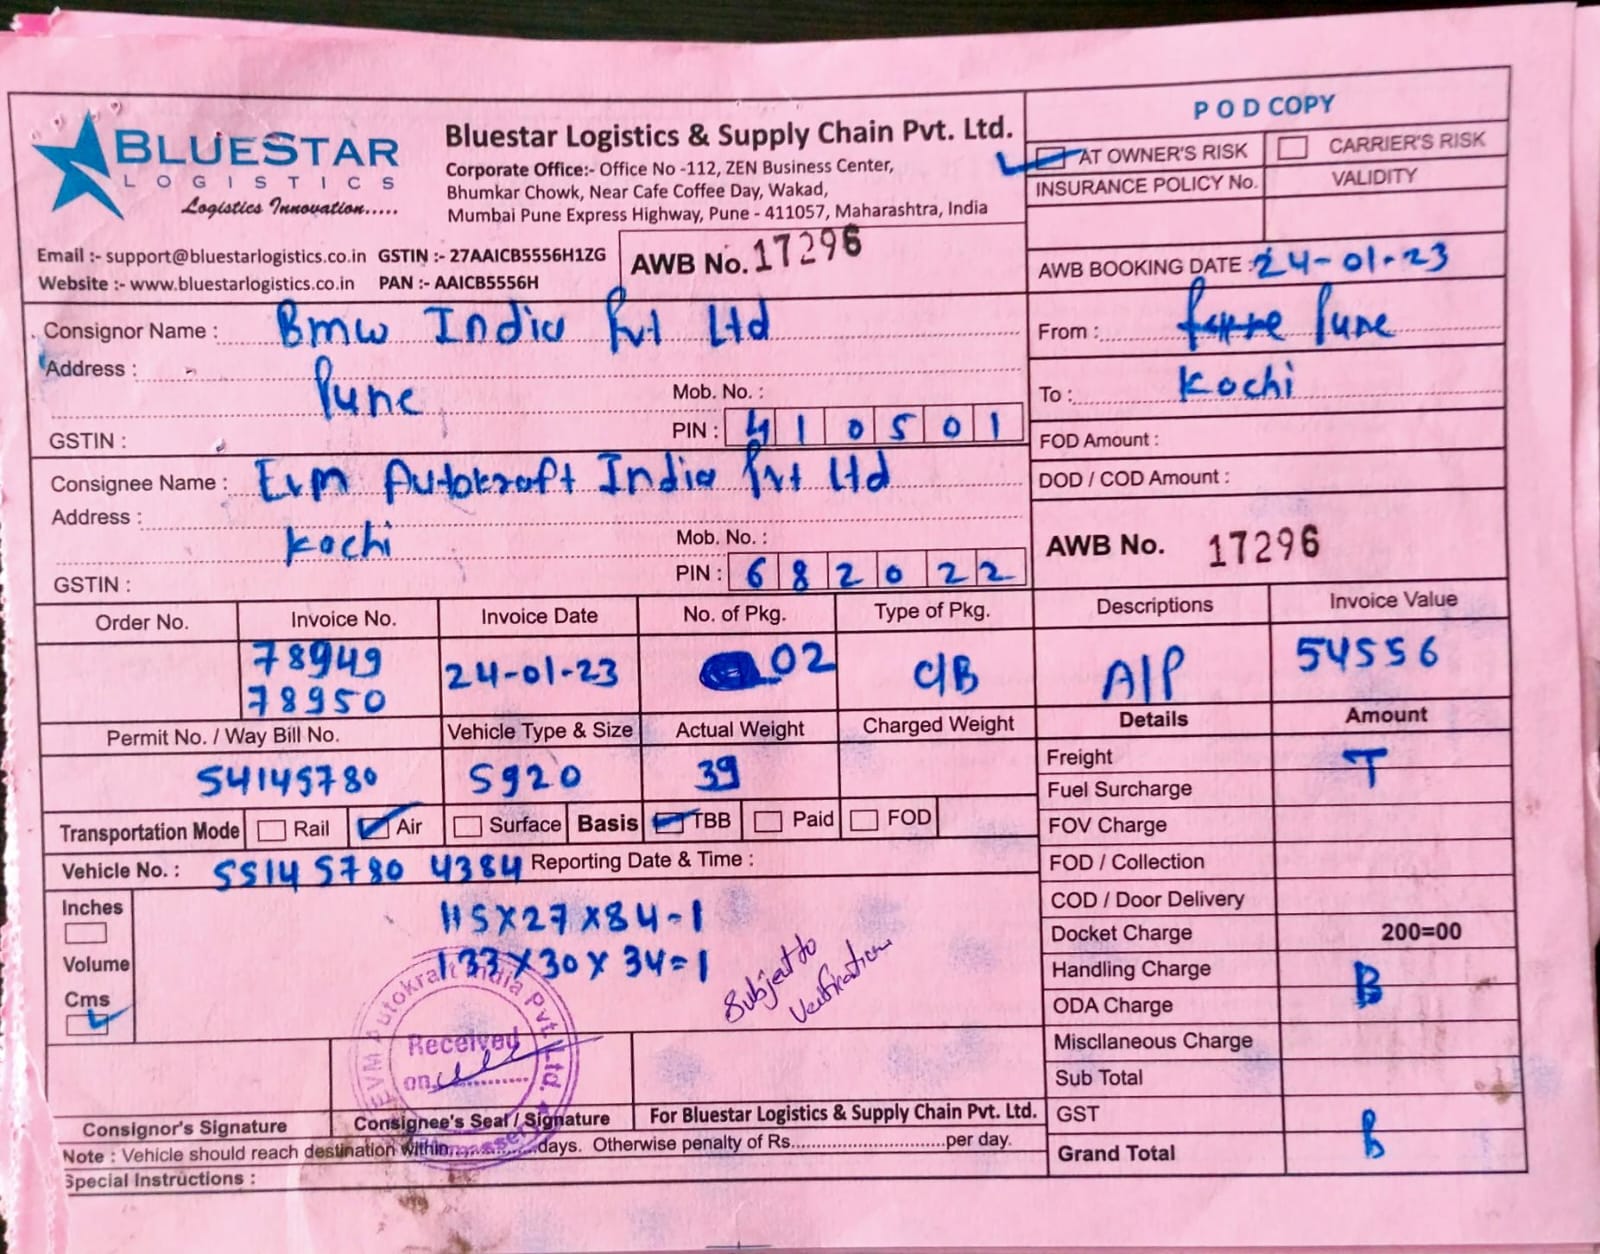 BLUESTAR
LOGISTICS
Logistics Innovation.....
Bluestar Logistics & Supply Chain Pvt. Ltd.
Corporate Office:- Office No -112, ZEN Business Center,
Bhumkar Chowk, Near Cafe Coffee Day, Wakad,
Mumbai Pune Express Highway, Pune - 411057, Maharashtra, India
Email :- support@bluestarlogistics.co.in GSTIN :- 27AAICB5556H1ZG
Website :- www.bluestarlogistics.co.in PAN :- AAICB5556H
AWB No. 17296
POD COPY
AT OWNER'S RISK CARRIER'S RISK
INSURANCE POLICY No. VALIDITY
AWB BOOKING DATE : 24-01-23
Consignor Name : Bmw India Pvt Ltd
Address :
Pune
Mob. No. :
GSTIN :
PIN : 410501
From : Pune
To : Kochi
FOD Amount :
DOD / COD Amount :
Consignee Name : Evm Autokraft India Pvt Ltd
Address :
Kochi
Mob. No. :
GSTIN :
PIN : 682022
AWB No. 17296
Order No. Invoice No. Invoice Date No. of Pkg. Type of Pkg. Descriptions Invoice Value
78949
78950
24-01-23 02 C/B A/P 54556
Permit No. / Way Bill No. Vehicle Type & Size Actual Weight Charged Weight Details Amount
54145780 5920 39
Freight T
Fuel Surcharge
Transportation Mode Rail Air Surface Basis TBB Paid FOD
FOV Charge
Vehicle No. : 55145780 4384 Reporting Date & Time :
FOD / Collection
Inches
Volume
Cms
115X27X84-1
133X30X34=1
Subject to
Verification
COD / Door Delivery
Docket Charge 200=00
Handling Charge B
ODA Charge
Miscllaneous Charge
Sub Total
GST
Grand Total B
EVM Autokraft India Pvt. Ltd.
Received
on
Consignor's Signature Consignee's Seal / Signature For Bluestar Logistics & Supply Chain Pvt. Ltd.
Note : Vehicle should reach destination within...............days. Otherwise penalty of Rs..............................per day.
Special Instructions :